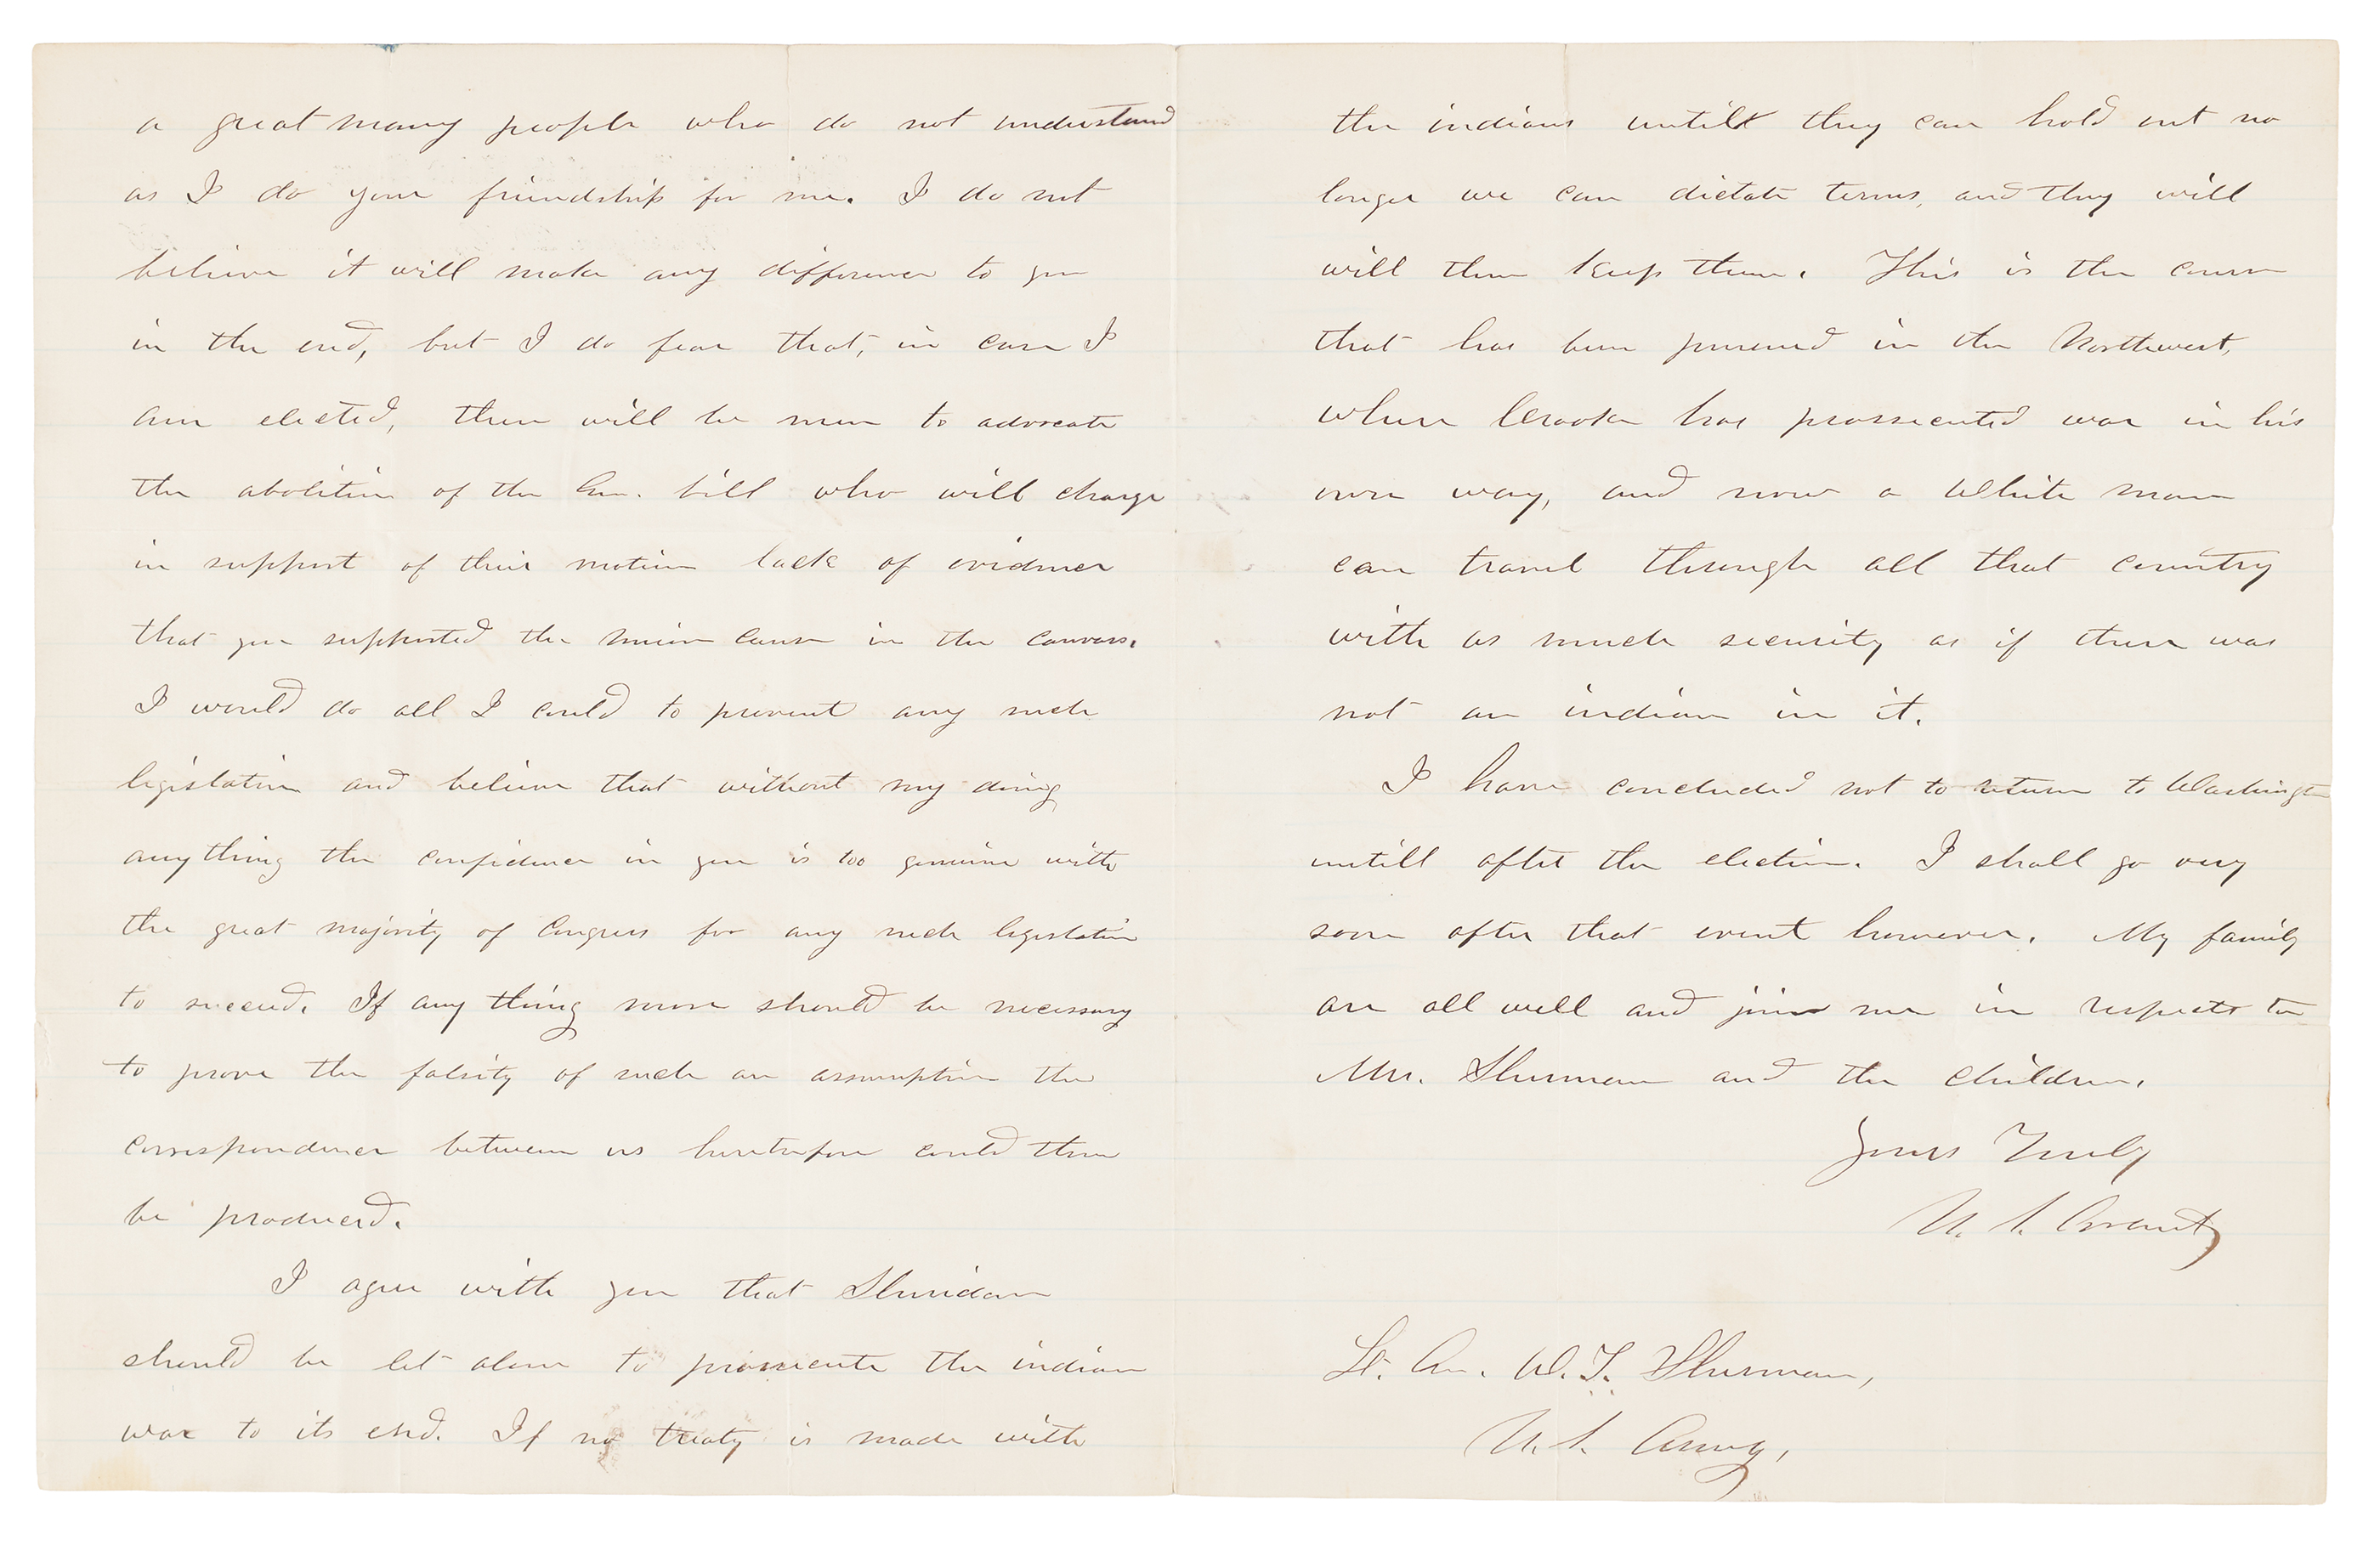 a great many people who do not understand
as I do your friendship for me. I do not
believe it will make any difference to you
in the end, but I do fear that, in case I
am elected, there will be men to advocate
the abolition of the Gen. bill who will charge
in support of their motion lack of evidence
that you supported the union cause in the canvass.
I would do all I could to prevent any such
legislation and believe that without my doing
any thing the confidence in you is too genuine with
the great majority of Congress for any such legislation
to succeed. If any thing more should be necessary
to prove the falsity of such an assumption the
correspondence between us heretofore could then
be produced.
I agree with you that Sheridan
should be let alone to prossecute the indian
war to its end. If no treaty is made with
the indians untill they can hold out no
longer we can dictate terms, and they will
will then keep them. This is the course
that has been pursued in the Northwest,
where Crooke has prossecuted war in his
own way, and now a white man
can travel through all that country
with as much security as if there was
not an indian in it.
I have concluded not to return to Washington
untill after the election. I shall go very
soon after that event however. My family
are all well and join me in respects to
Mrs. Sherman and the children.
Yours Truly
U. S. Grant
Lt. Gn. W. T. Sherman,
U. S. Army,